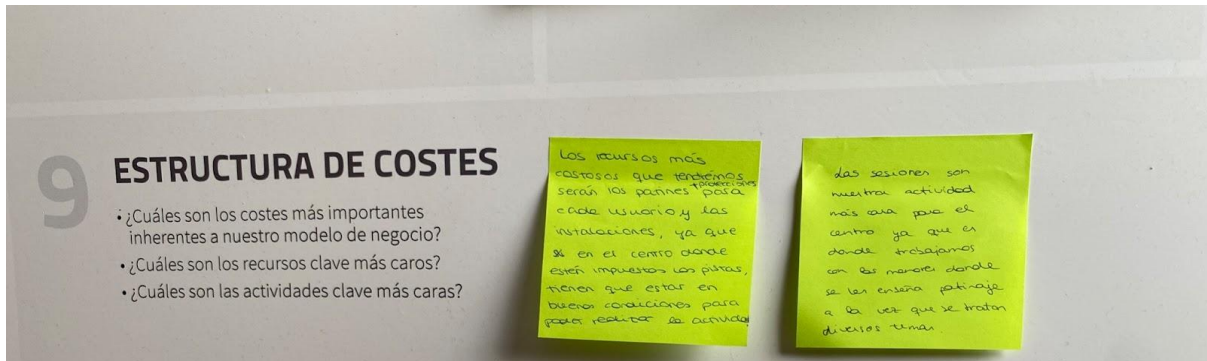 9
ESTRUCTURA DE COSTES
• ¿Cuáles son los costes más importantes
inherentes a nuestro modelo de negocio?
• ¿Cuáles son los recursos clave más caros?
• ¿Cuáles son las actividades clave más caras?
Los recursos más
costosos que tendremos
serán los patines + protecciones para
cada usuario y las
instalaciones, ya que
en el centro donde
estén impuestos las pistas,
tienen que estar en
buenas condiciones para
poder realizar la actividad
Las sesiones son
nuestra actividad
más cara para el
centro ya que es
donde trabajamos
con los menores donde
se les enseña patinaje
a la vez que se tratan
diversos temas.